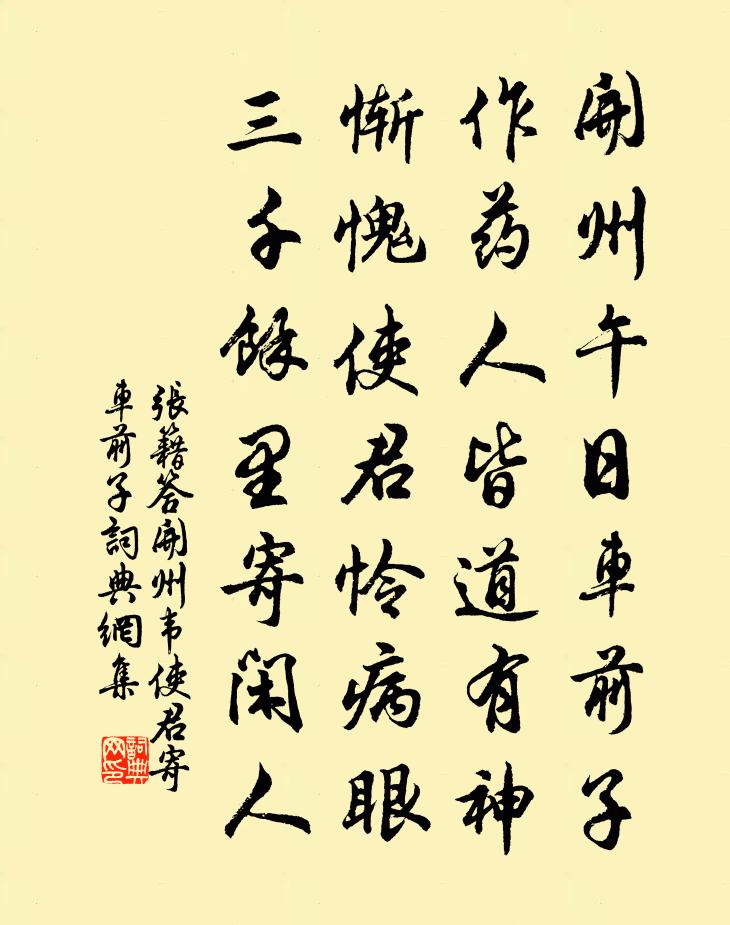 開州午日車前子
作药人皆道有神
惭愧使君怜病眼
三千餘里寄閑人
張籍答開州韦使君寄
車前子詞典網集
詞典
网印